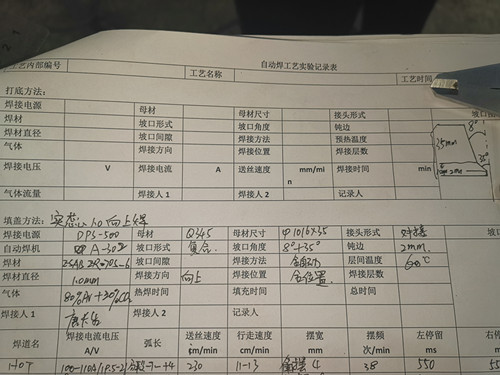 自动焊工艺实验记录表
工艺内部编号 工艺名称 工艺时间
打底方法：
焊接电源 母材 母材尺寸 接头形式
焊材 坡口形式 坡口角度 钝边
焊材直径 坡口间隙 焊接方法 预热温度
气体 焊接方向 焊接位置 焊接层数
焊接电压 V 焊接电流 A 送丝速度 mm/min 焊接时间 min
气体流量 焊接人1 焊接人2 记录人
8°
35mm
35°
2mm
填盖方法：实芯1.0向上焊
焊接电源 DPS-500 母材 Q345 母材尺寸 φ1016X35 接头形式 对接
自动焊机 A-30 坡口形式 复合 坡口角度 8°+35° 钝边 2mm
焊材 坡口间隙 焊接方法 全自动 层间温度 ℃
焊材直径 1.0mm 焊接方向 向上 焊接位置 全位置 焊接层数
气体 80%Ar+20%CO2 热焊时间 填充时间 总时间
焊接人1 焊接人2 记录人
焊道名 焊接电流电压 A/V 弧长 送丝速度 cm/min 行走速度 cm/min 摆宽 mm 摆频 次/min 左停留 ms 右停
HOT 230 11-13 4 38 550 55